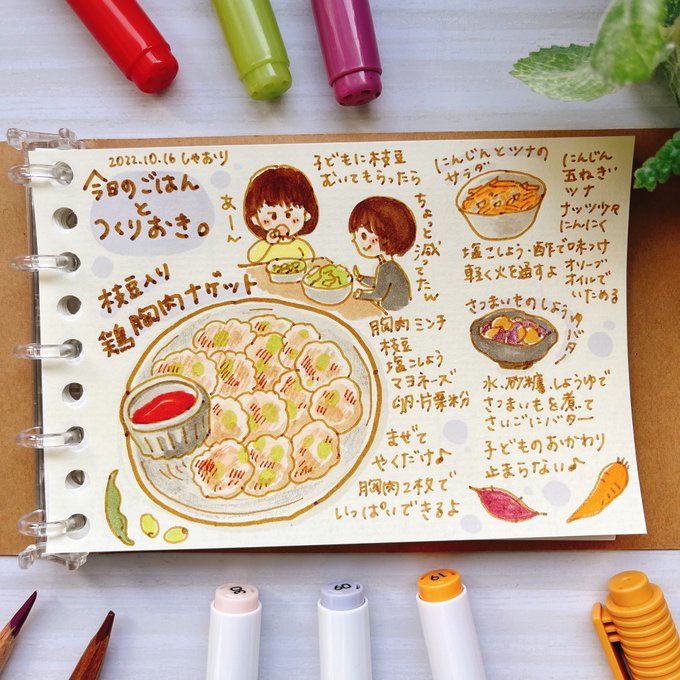 2022.10.16 しゃおり
今日のごはん
と
つくりおき。
子どもに枝豆
むいてもらったら
あーん
ちょっと減ってたw
枝豆入り
鶏胸肉ナゲット
胸肉ミンチ
枝豆
塩こしょう
マヨネーズ
卵・片栗粉
まぜて
やくだけ♪
胸肉2枚で
いっぱいできるよ
にんじんとツナの
サラダ
にんじん
玉ねぎ
ツナ
ナッツ少々
にんにく
オリーブ
オイルで
いためる
塩こしょう・酢で味つけ
軽く火を通すよ
さつまいものしょうゆ
バター
水、砂糖、しょうゆで
さつまいもを煮て
さいごにバター
子どものおかわり
止まらない♪
60
61